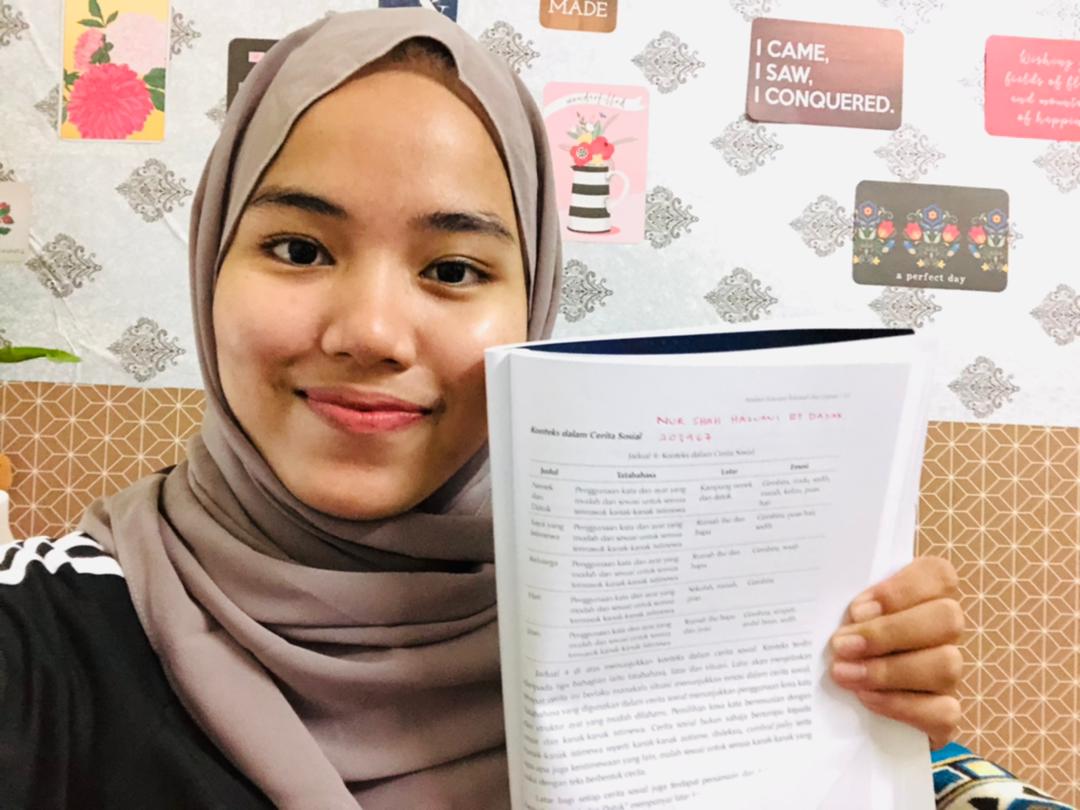 MADE
I CAME,
I SAW,
I CONQUERED.
Wishing
fields of
and
of happin
wonderfilled
a perfect day
NUR SHAH HAZWANI BT
203967
Konteks dalam Cerita Sosial
Jadual 4: Konteks dalam Cerita Sosial
Judul Tatabahasa Latar Emosi
Nenek dan Datuk Penggunaan kata dan ayat yang mudah dan sesuai untuk semua termasuk kanak-kanak istimewa Kampung nenek dan datuk Gembira,
Saya yang Istimewa Penggunaan kata dan ayat yang mudah dan sesuai untuk semua termasuk kanak-kanak istimewa Rumah ibu dan bapa Gembira, puas hati, sedih
Keluarga Penggunaan kata dan ayat yang mudah dan sesuai untuk semua termasuk kanak-kanak istimewa Rumah ibu dan bapa Gembira,
Penggunaan kata dan ayat yang mudah dan sesuai untuk semua termasuk kanak-kanak istimewa Sekolah, rumah, Gembira
Penggunaan kata dan ayat yang mudah dan sesuai untuk semua termasuk kanak-kanak istimewa Rumah ibu bapa dan Gembira,
Jadual 4 di atas menunjukkan konteks dalam cerita sosial. Konteks terdiri
daripada tiga bahagian iaitu tatabahasa, latar dan situasi. Latar akan menjelaskan
cerita ini berlaku manakala situasi menunjukkan emosi dalam cerita sosial.
Tatabahasa yang digunakan dalam cerita sosial menunjukkan penggunaan kosa kata
dan struktur ayat yang mudah difahami. Pemilihan kosa kata bersesuaian dengan
dan kanak-kanak istimewa. Cerita sosial bukan sahaja berupaya kepada
kanak-kanak istimewa seperti kanak-kanak autisme, disleksia, cerebral palsy serta
apa juga keistimewaan yang lain, malah sesuai untuk semua kanak-kanak yang
dengan teks berbentuk cerita.
Latar bagi setiap cerita sosial juga terdapat persamaan dan
dan Datuk" mempunyai latar